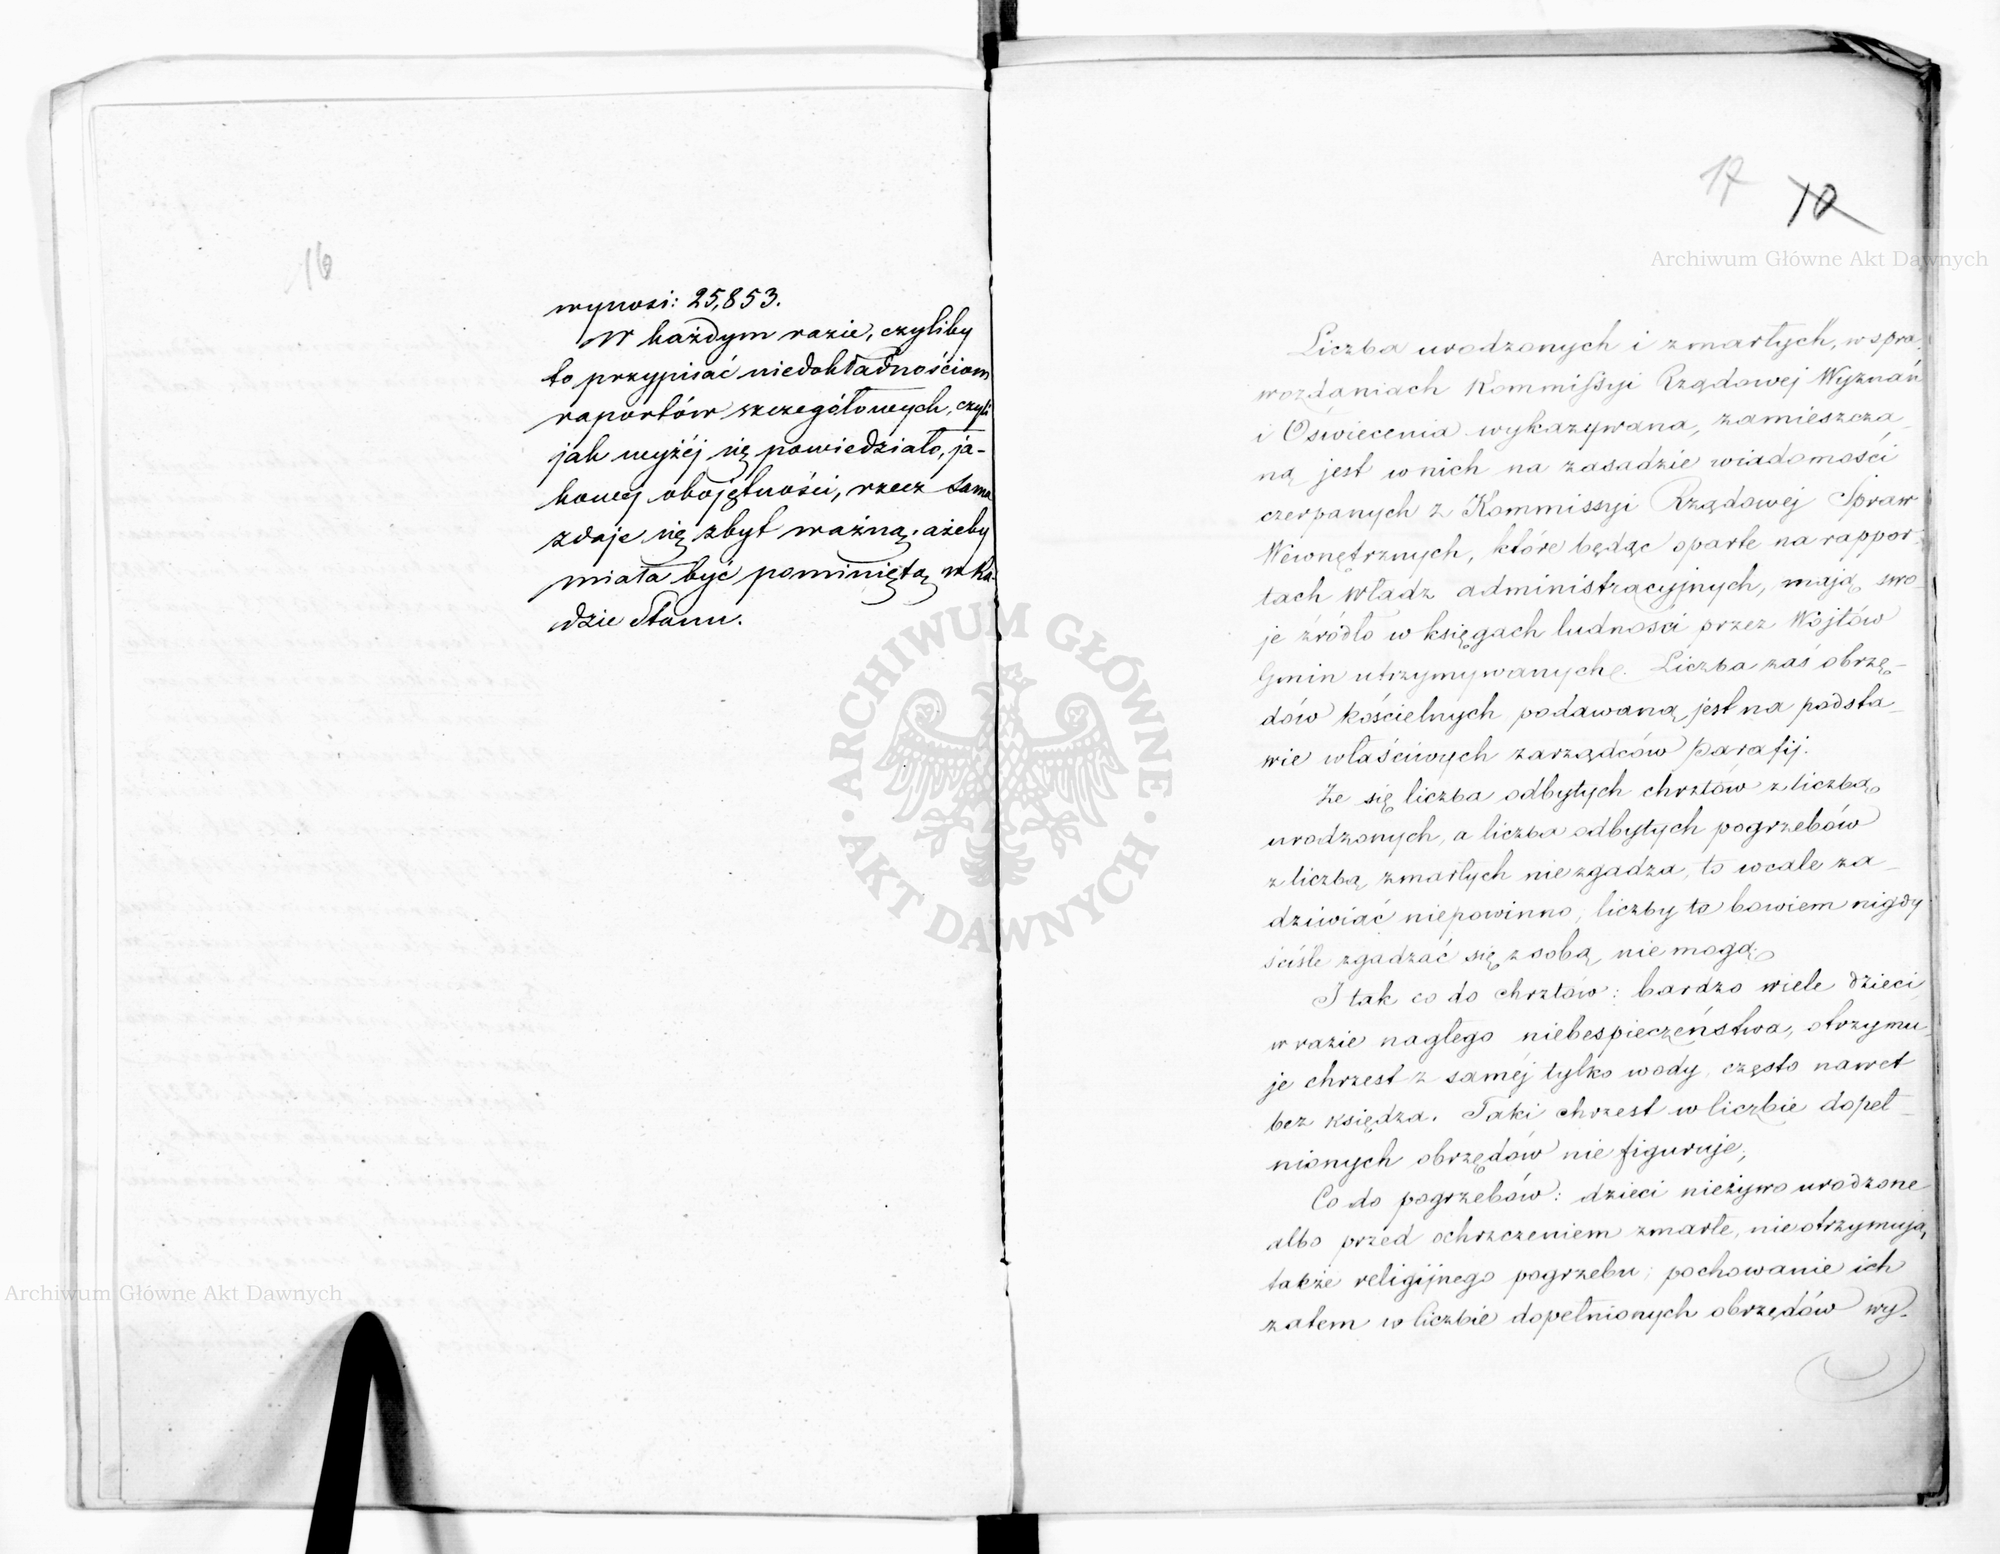 16
wynosi: 25,853.
W każdym razie, czyliby
to przypisać niedokładnościom
raportów szczegółowych, czyli
jak wyżéj się powiedziało, ja-
kowej obojętności, rzecz sama
zdaje się zbyt ważną, ażeby
miała być pominiętą w Ra-
dzie Stanu.
17 10
Archiwum Główne Akt Dawnych
Liczba urodzonych i zmarłych, w spra-
wozdaniach Kommissyi Rządowej Wyznań
i Oświecenia wykazywana, zamieszcza-
ną jest w nich na zasadzie wiadomości
czerpanych z Kommissyi Rządowej Spraw
Wewnętrznych, które będąc oparte na rappor-
tach władz administracyjnych, mają swo-
je źródło w księgach ludności przez Wójtów
Gmin utrzymywanych. Liczba zaś obrzę-
dów kościelnych podawaną jest na podsta-
wie właściwych zarządców parafij.
Że się liczba odbytych chrztów z liczbą
urodzonych, a liczba odbytych pogrzebów
z liczbą zmarłych nie zgadza, to wcale za-
dziwiać niepowinno, liczby te bowiem nigdy
ściśle zgadzać się z sobą nie mogą.
I tak co do chrztów: bardzo wiele dzieci
w razie nagłego niebespieczeństwa, otrzymu-
je chrzest z saméj tylko wody, często nawet
bez księdza. Taki chrzest w liczbie dopeł-
nionych obrzędów nie figuruje,
Co do pogrzebów: dzieci nieżywo urodzone
albo przed ochrzczeniem zmarłe, nie otrzymują
także religijnego pogrzebu; pochowanie ich
zatem w liczbie dopełnionych obrzędów wy-
ARCHIWUM GŁÓWNE
AKT DAWNYCH
Archiwum Główne Akt Dawnych